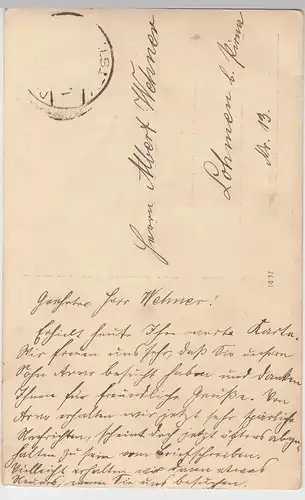 Herrn Albert Wehner
Lohmen b. Pirna
Nr. 13.
Geehrter Herr Wehner!
Erhielt heute Ihre werte Karte.
Wir freuen uns sehr, daß Sie unsern
Sohn Arno besucht haben und danken
Ihnen für freundliche Grüße. Von
Arno erhalten wir jetzt sehr spärliche
Nachrichten, scheint doch jetzt öfters abge-
halten zu sein vom Briefschreiben.
Vielleicht erhalten wir dann etwas
Neues, wenn Sie uns besuchen.